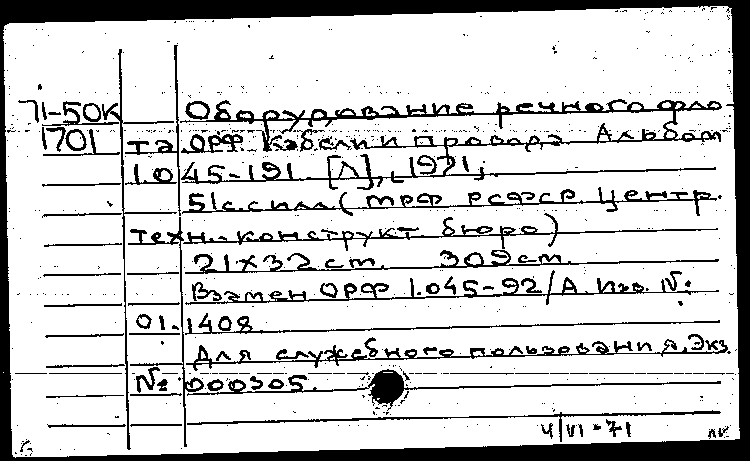 71-50К Оборудование речного фло-
1701 та. ОРФ. Кабели и провода. Альбом
1.045-191. [Л], 1971,
51 с. с илл. (МРФ РСФСР. Центр.
техн.-конструкт. бюро)
21×32 cm. 309 cm.
Взамен ОРФ 1.045-92/А. Изв. №:
01.1408.
Для служебного пользования, Экз.
№ 000305.
4/VI-71